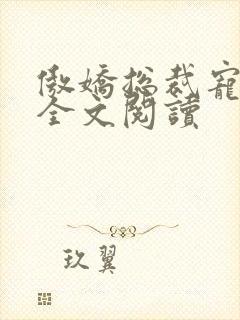 傲嬌総裁寵
全文閱讀
玖翼